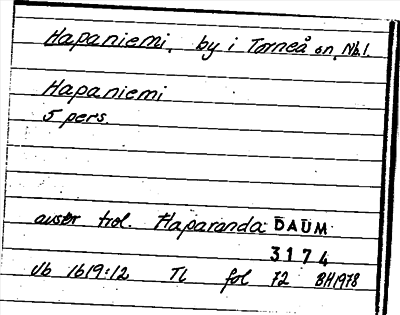 Hapaniemi, by i Torneå sn, Nb.l.
Hapaniemi
5 pers.
avser trol. Haparanda DAUM
3174
Vb 1619:12 TL fol 72 BH1978